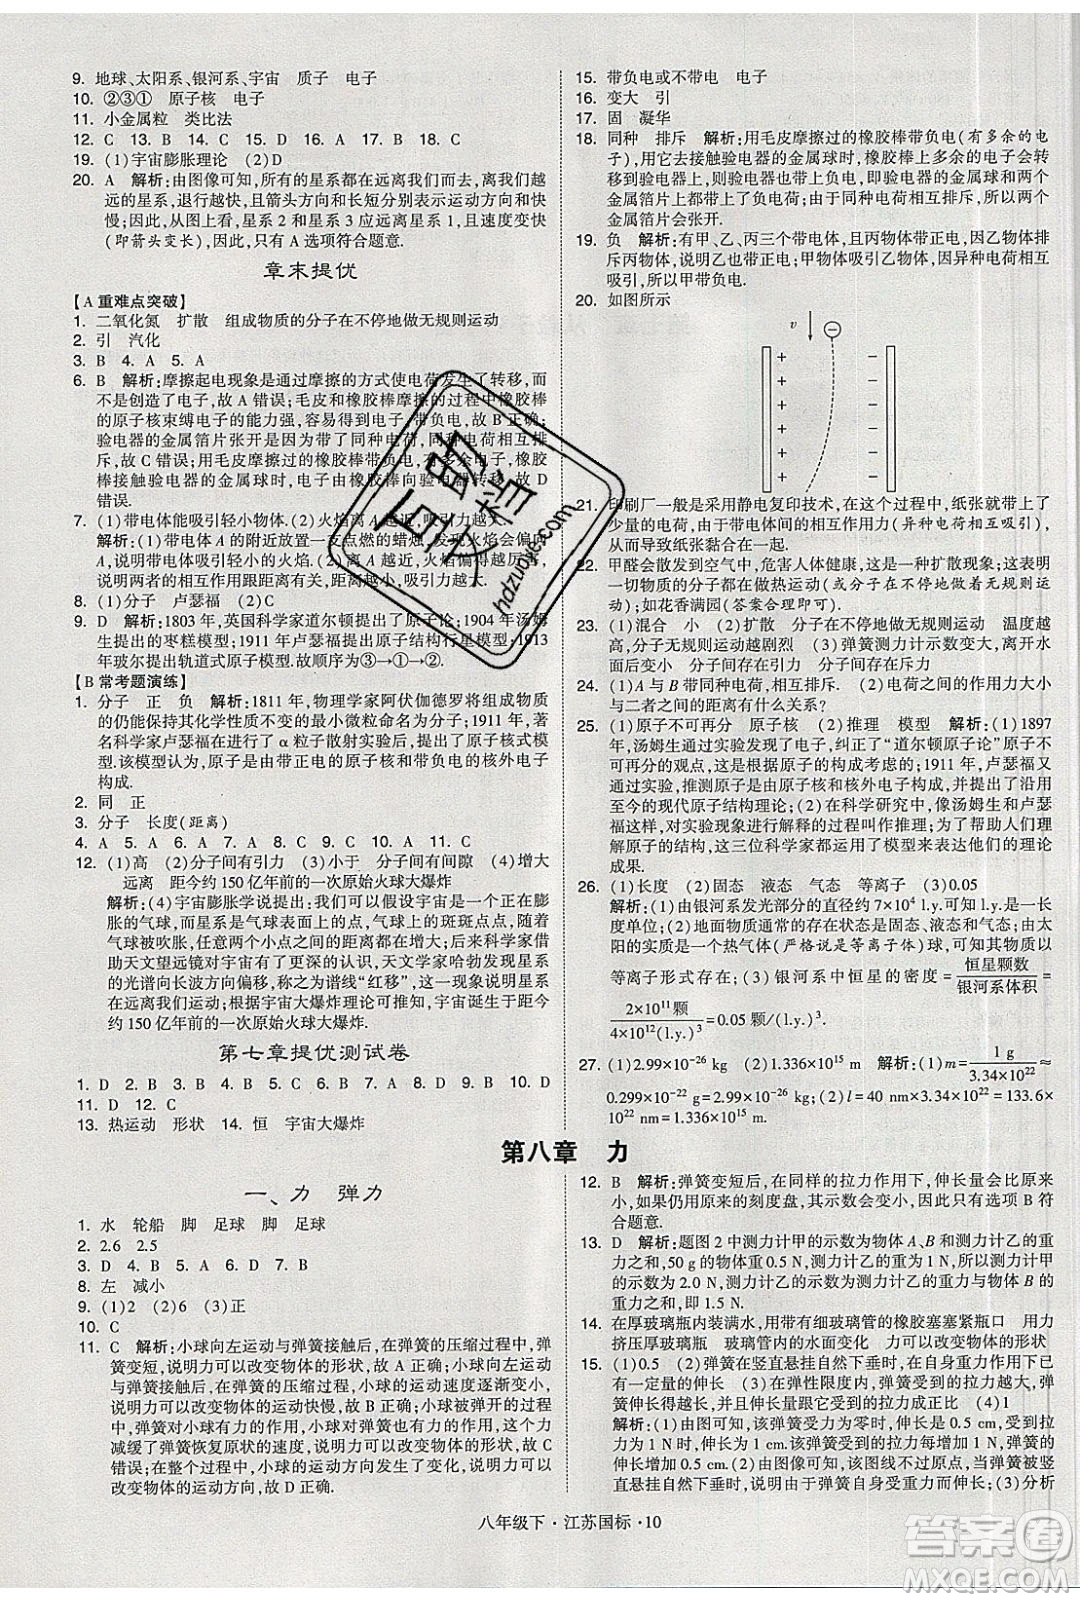 9. 地球、太阳系、银河系、宇宙 质子 电子
10. ②③① 原子核 电子
11. 小金属粒 类比法
12. C 13. B 14. C 15. D 16. A 17. C 18. C
19. (1)宇宙膨胀理论 (2)D
20. A 解析:由图像可知,所有的星系都在远离我们而去,且离我们越
远的星系,退行越快,且箭头方向和长短分别表示运动方向和快
慢;因此,从图上看,星系 2 和星系 3 应远离星系 1,且速度变快
(即箭头变长),因此,只有 A 选项符合题意.
章末提优
【A 重难点突破】
1. 二氧化氮 扩散 组成物质的分子在不停地做无规则运动
2. 引 汽化
3. B 4. A 5. A
6. B 解析:摩擦起电现象是通过摩擦的方式使电荷发生了转移,而
不是创造了电荷,故 A 错误;毛皮和橡胶棒摩擦的过程中橡胶棒
的原子核束缚电子的能力强,容易得到电子,带负电,故 B 正确;
验电器的金属箔片张开是因为带了同种电荷,同种电荷相互排
斥,故 C 错误;用毛皮摩擦过的橡胶棒带负电,有多余电子,橡胶
棒接触验电器的金属球时,电子从橡胶棒向验电器转移,故 D
错误.
7. (1)带电体能吸引轻小物体. (2)火焰离 A 越近,吸引力越大.
解析:(1)带电体 A 的附近放置一支点燃的蜡烛,发现火焰偏向
A,说明带电体吸引轻小的火焰. (2)离 A 越近,火焰偏得越厉害,
说明两者的相互作用跟距离有关,距离越小,吸引力越大.
8. (1)分子 卢瑟福 (2)C
9. D 解析:1803 年,英国科学家道尔顿提出了原子论;1904 年汤姆
生提出的枣糕模型;1911 年卢瑟福提出原子结构行星模型;1913
年玻尔提出轨道式原子模型.故顺序为③→①→②.
【B 常考题演练】
1. 分子 正 负 解析:1811 年,物理学家阿伏伽德罗将组成物质
的仍能保持其化学性质不变的最小微粒命名为分子;1911 年,著
名科学家卢瑟福在进行了 α 粒子散射实验后,提出了原子核式模
型.该模型认为,原子是由带正电的原子核和带负电的核外电子
构成.
2. 同 正
3. 分子 长度(距离)
4. A 5. A 6. A 7. A 8. C 9. D 10. A 11. D
12. (1)高 (2)分子间有引力 (3)小于 分子间有间隙 (4)增大
远离 距今约 150 亿年前的一次原始火球大爆炸
解析:(4)宇宙膨胀学说提出:可以假设宇宙是一个正在膨
胀的气球,而星系是气球表面上的点,气球上的斑斑点点,随着
气球被吹胀,任何两个小点之间的距离不断增大,使科学家们
对宇宙的存在有了更深的认识,此外,英国的科学家研究中借
助天文望远镜对宇宙观察,天文学家哈勃发现,远处星系
的光谱均向长波方向偏移,称之为谱线"红移",这一现象说明星系
在远离我们运动;根据宇宙大爆炸理论可推知,宇宙诞生于距今
约 150 亿年前的一次原始火球大爆炸.
第七章提优测试卷
1. D 2. B 3. B 4. D 5. C 6. D 7. D 8. D 9. B 10. D
11. D 12. C
13. 热运动 形状 14. 恒 宇宙大爆炸
15. 带负电或不带电 电子
16. 变大 引
17. 固 凝华
18. 同种 排斥 解析:用毛皮摩擦过的橡胶棒带负电(有多余的电
子),用它去接触验电器的金属球时,橡胶棒上多余的电子会转
移到验电器上,则验电器的金属球和金属箔片都带上了负电荷;两
金属箔片上带上负电荷后,由于同种电荷相互排斥,所以两片
金属箔片才会张开.
19. 负 解析:有甲、乙、丙三个带电体,且丙物体带正电,因乙物体排
斥丙物体,说明乙带正电;甲物体吸引乙物体,因异种电荷相互
吸引,所以甲带负电.
20. 如图所示
v
−
+ −
+ −
+ −
+ −
21. 印刷厂一般是采用静电复印技术,在这个过程中,纸张就带上了
少量的电荷,由于带电体间的相互作用力(异种电荷相互吸引),
从而导致纸张黏合在一起.
22. 甲醛会散发到空气中,危害人体健康,这是一个扩散现象,说明
一切物质的分子都在做热运动(或分子在不停地做无规则运
动);如花香满园(答案合理即可).
23. (1)混合 小 (2)扩散 分子在不停地做无规则运动 温度越
高,分子无规则运动越剧烈 (3)弹簧测力计示数变大,离开水
面后,示数又变小 分子间存在引力 分子间存在斥力
24. (1)A 与 B 带同种电荷,相互排斥. (2)电荷之间的作用力大小
与二者之间的距离有什么关系?
25. (1)原子不可再分 原子核 (2)推理 模型 解析:(1)1897
年,汤姆生通过实验发现了电子,纠正了"道尔顿原子论"原子不
可再分的观点,这是根据原子的构成考虑的;1911 年,卢瑟福又
通过实验,推测原子是由原子核和核外电子构成的,这种观点沿用
至今的现代原子结构理论; (2)在科学研究中,像汤姆生和卢瑟
福那样,对实验现象进行解释的过程叫作推理;在探索微观粒
子的结构中,这三位科学家都运用了大胆的建立模型的理论
成果.
26. (1)长度 (2)固态 液态 气态 等离子 (3)0.05
解析:(1)由银河系发光部分的直径约 7×10⁴ l.y.可知,l.y.是长
度单位;(2)地面物质通常的存在状态是固态、液态、气态,由太
阳的实质是一个热气体(严格说是等离子)球,可知其物质以
等离子形式存在;(3)银河系中恒星的密度=恒星颗数/银河系体积=
2×10¹¹颗/4×10¹²(l.y.)³=0.05 颗/(l.y.)³.
27. (1)2.99×10⁻²⁶ (2)1.336×10¹⁵ m 解析:(1)m=1 g/3.34×10²²≈
0.299×10⁻²² g=2.99×10⁻²⁶ kg;(2) l=40 nm×3.34×10²²=133.6×
10¹³ m=1.336×10¹⁵ m.
第八章 力
一、力 弹力
1. 水 轮船 脚 足球 脚 足球
2. 2.6 2.5
3. D 4. B 5. A 6. D 7. B
8. 左 减小
9. (1)2 (2)6 (3)正
10. C
11. C 解析:小球向左运动与弹簧接触后,在弹簧的压缩过程中,弹
簧变短,说明力可以改变物体的形状,故 A 正确;小球向左运动与
弹簧接触后,在弹簧的压缩过程中,小球的运动速度变慢,说明力
可以改变物体的运动快慢,故 B 正确;小球被弹开的过程中,弹
簧对小球有力的作用,同时小球对弹簧也有力的作用,这个力
减缓了弹簧恢复原状的速度,说明力可以改变物体的形状,故 C
错误;整个过程中,小球的运动方向发生了变化,说明力可以改
变物体的运动方向,故 D 正确.
12. B 解析:弹簧变短后,在同样的拉力作用下,伸长量会比原来
小,如果仍采用原来的刻度盘,示数会变小,因此,只有选项 B 符
合题意.
13. D 解析:题图 2 中测力计甲的示数为物体 A、B 和测力计乙的重
力之和,50 g 的物重为 0.5 N,测力计乙的重为 1 N,所以测力计甲
的示数为 2.0 N,测力计乙的示数为测力计乙的重与物体 B 的重
力之和,即 1.5 N.
14. 在厚玻璃瓶内装满水,用带有细玻璃管的橡胶塞塞紧瓶口 用力
挤压厚玻璃瓶 玻璃管内的水面变化 力可以改变物体的形状
15. (1)0.5 (2)弹簧在竖直悬挂自然下垂时,在自重的作用下已
有一定量的伸长 (3)在弹性限度内,弹簧受到的拉力越大,其
弹簧伸长得越长 弹簧的伸长量跟它受到的拉力成正比 (4)1
解析:(1)由图可知,该弹簧受力为零时,伸长量 0.5 cm,该弹簧受
力为 1 N 时,伸长 1 cm.即该弹簧所受的拉力每增加 1 N,弹簧伸
长 0.5 cm.(2)由图像可知,该图线不过原点,该弹簧竖直
悬挂自然下垂时,弹簧自身受重力而伸长;(3)分析
八年级下·江苏国标·10
互助文档
hdzuoye.com
答案圈
MXQE.COM